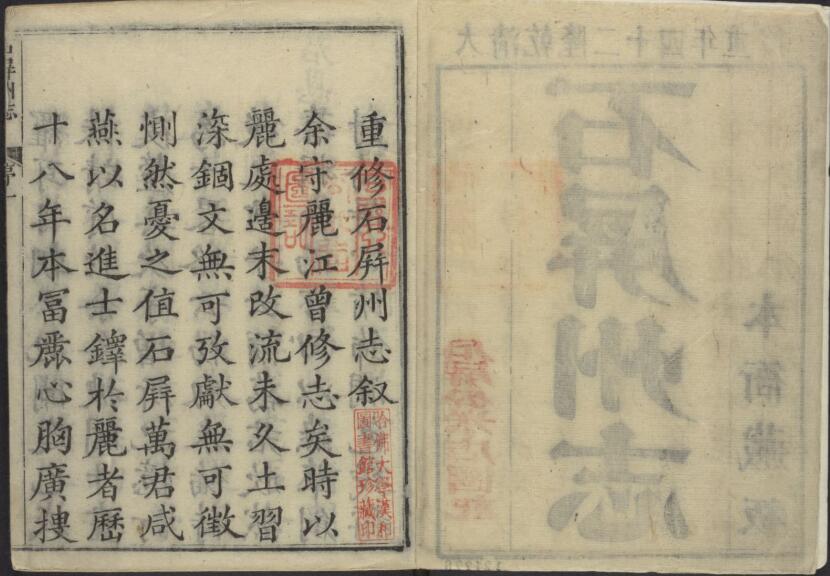 大清乾隆二十四年重
石屏州志
本衙藏板
重修石屏州志叙
余守麗江曾修志矣時以
麗處邊末改流未久土習
深錮文無可攷獻無可徵
惻然憂之值石屏萬君咸
燕以名進士鐸於麗者歷
十八年本冨麗心胸廣捜
石屏州志
序一
哈佛大學漢和
圖書館珍藏印